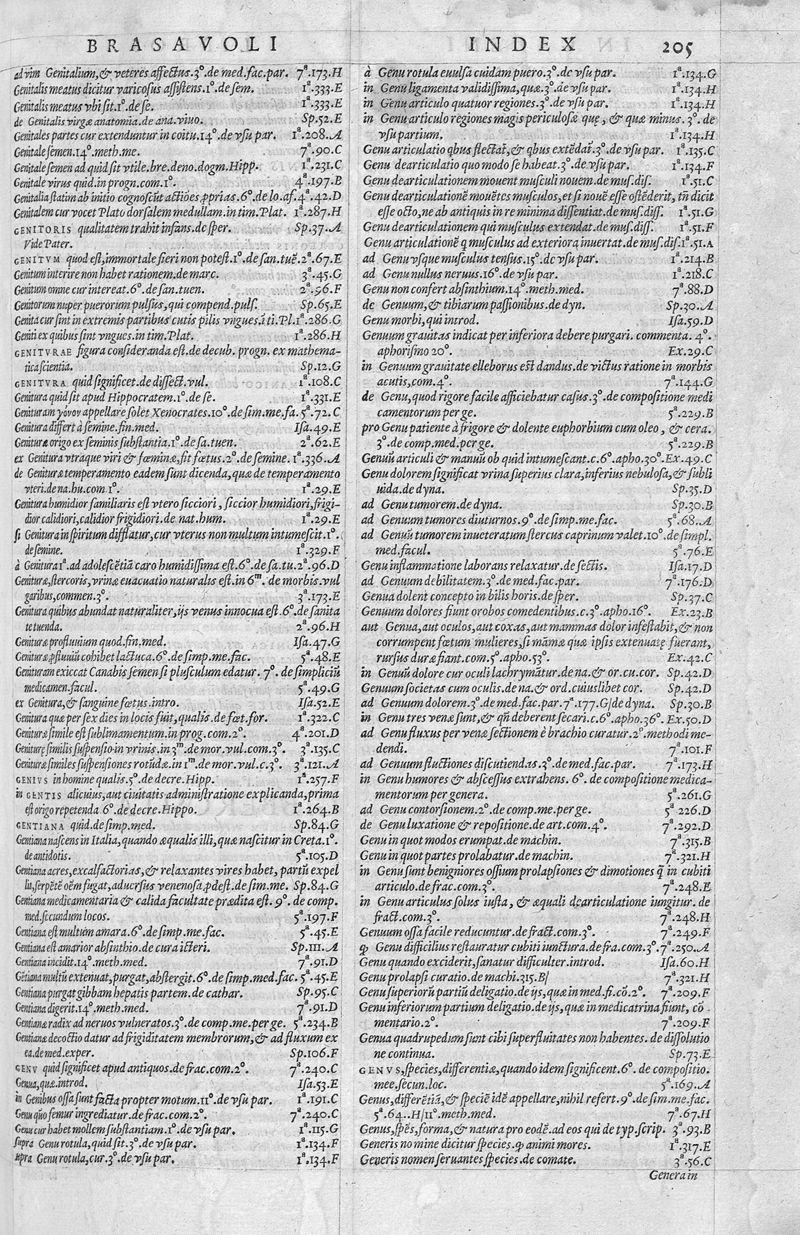 BRASAVOLI
ad vim Genitalium,& veteres affectus.3°.de med.fac.par. 7ª.173.H
Genitalis meatus dicitur varicosus assistens.1°.de sem. 1ª.333.E
Genitalis meatus vbi sit.1°.de se. 1ª.333.E
de Genitalis virgæ anatomia.de ana.viuo. Sp.52.E
Genitales partes cur extenduntur in coitu.14°.de vsu par. 1ª.208.A
Genitale semen.14°.meth.me. 7ª.90.C
Genitale semen ad quid sit vtile.bre.deno.dogm.Hipp. 1ª.231.C
Genitale virus quid.in progn.com.1°. 4ª.197.B
Genitalia statim ab initio cognoscūt actiões,pprias.6°.de lo.af.4ª.42.D
Genitalem cur vocet Plato dorsalem medullam.in tim.Plat. 1ª.287.H
GENITORIS qualitatem trahit infans.de sper. Sp.37.A
Vide Pater.
GENITVM quod est,immortale fieri non potest.1°.de san.tuē.2ª.67.E
Genitum interire non habet rationem.de marc. 3ª.45.G
Genitum omne cur intereat.6°.de san.tuen. 2ª.56.F
Genitorum nuper puerorum pulsus,qui compend.puls. Sp.65.E
Genita cur sint in extremis partibus cutis pilis vngues.ī ti.Pl.1ª.286.G
Geniti ex quibus sint vngues.in tim.Plat. 1ª.286.H
GENITVRAE figura consideranda est.de decub. progn. ex mathema-
tica scientia. Sp.12.G
GENITVRA quid significet.de dissect.vul. 1ª.108.C
Genitura quid sit apud Hippocratem.1°.de se. 1ª.331.E
Genituram γόνον appellare solet Xenocrates.10°.de sim.me.fa.5ª.72.C
Genitura differt à semine.fin.med. Isa.49.E
Genituræ origo ex seminis substantia.1°.de sa.tuen. 2ª.62.E
ex Genitura vtraque viri & fœminæ,fit fœtus.2°.de semine.1ª.336.A
de Genituræ temperamento eadem sunt dicenda,quæ de temperamento
vteri.de na.hu.com 1°. 1ª.29.E
Genitura humidior familiaris est vtero sicciori , siccior humidiori,frigi-
dior calidiori,calidior frigidiori.de nat.hum. 1ª.29.E
si Genitura in spiritum difflatur,cur vterus non multum intumescit.1°.
de semine. 1ª.329.F
à Genitura 1ª.ad adolescētiā caro humidissima est.6°.de sa.tu.2ª.96.D
Genituræ,stercoris,vrinæ euacuatio naturalis est.in 6ᵐ. de morbis vul
garibus,commen.3°. 3ª.173.E
Genitura quibus abundat naturaliter,ijs venus innocua est.6°.de sanita
te tuenda. 2ª.96.H
Genituræ profluuium quod.fin.med. Isa.47.G
Genituræ pfluuiū cohibet lactuca.6°.de simp.me.fac. 5ª.48.E
Genituram exiccat Canabis semen si plusculum edatur. 7°. de simpliciū
medicamen.facul. 5ª.49.G
ex Genitura,& sanguine fœtus.intro. Isa.52.E
Genitura quæ per sex dies in locis fuit,qualis.de fœt.for. 1ª.322.C
Genituræ simile est sublimamentum.in prog.com.2°. 4ª.201.D
Geniturę similis suspensio in vrinis.in 3ᵐ.de mor.vul.com.3°. 3ª.135.C
Genituræ similes suspensiones rotūdæ.in 1ᵐ.de mor.vul.c.3°. 3ª.121.A
GENIVS in homine qualis.5°.de decre.Hipp. 1ª.257.F
in GENTIS alicuius,aut ciuitatis administratione explicanda,prima
est origo repetenda 6°.de decre.Hippo. 1ª.264.B
GENTIANA quid.de simp.med. Sp.84.G
Gentiana nascens in Italia,quando æqualis illi,quæ nascitur in Creta.1°.
de antidotis. 5ª.105.D
Gentiana acres,excalfactorias,& relaxantes vires habet, partū expel
lit,serpētē oēm fugat,aduersus venenosa,pdest.de sim.me. Sp.84.G
Gentiana medicamentaria & calida facultate prædita est. 9°. de comp.
med.secundum locos. 5ª.197.F
Gentiana est multum amara.6°.de simp.me.fac. 5ª.45.E
Gentiana est amarior absinthio.de cura icteri. Sp.111.A
Gentiana incidit.14°.meth.med. 7ª.91.D
Gētiana multū extenuat,purgat,abstergit.6°.de simp.med.fac. 5ª.45.E
Gentiana purgat gibbam hepatis partem.de cathar. Sp.95.C
Gentiana digerit.14°.meth.med. 7ª.91.D
Gentianæ radix ad neruos vulneratos.3°.de comp.me.per ge. 5ª.234.B
Gentianæ decoctio datur ad frigiditatem membrorum,& ad fluxum ex
ea.de med.exper. Sp.106.F
GENV quid significet apud antiquos.de frac.com.2°. 7ª.240.C
Genua,quæ.introd. Isa.53.E
in Genibus ossa sunt facta propter motum.11°.de vsu par. 1ª.191.C
Genu quo femur ingrediatur.de frac.com.2°. 7ª.240.C
Genu cur habet mollem substantiam.1°.de vsu par. 1ª.115.G
supra Genu rotula,quid sit.3°.de vsu par. 1ª.134.F
supra Genu rotula,cur.3°.de vsu par. 1ª.134.F
INDEX 205
à Genu rotula euulsa cuidam puero.3°.de vsu par. 1ª.134.G
in Genu ligamenta validissima,quæ.3°.de vsu par. 1ª.134.H
in Genu articulo quatuor regiones.3°.de vsu par. 1ª.134.H
in Genu articulo regiones magis periculosæ quę, & quæ minus. 3°. de
vsu partium. 1ª.134.H
Genu articulatio qbus flectat,& qbus extēdat.3°.de vsu par. 1ª.135.C
Genu dearticulatio quo modo se habeat.3°.de vsu par. 1ª.134.F
Genu dearticulationem mouent musculi nouem.de mus.dis. 1ª.51.C
Genu dearticulationē mouētes musculos,et si nouē esse ostēderit, tn̄ dicit
esse octo,ne ab antiquis in re minima dissentiat.de mus.diss. 1ª.51.G
Genu dearticulationem qui musculus extendat.de mus.diss. 1ª.51.F
Genu articulationē q musculus ad exteriora inuertat.de mus.dis.1ª.51.A
ad Genu vsque musculus tensus.15°.de vsu par. 1ª.214.B
ad Genu nullus neruus.16°.de vsu par. 1ª.218.C
Genu non confert absinthium.14°.meth.med. 7ª.88.D
de Genuum,& tibiarum passionibus.de dyn. Sp.30.A
Genu morbi,qui introd. Isa.59.D
Genuum grauitas indicat per inferiora debere purgari. commenta. 4°.
aphorismo 20°. Ex.29.C
in Genuum grauitate elleborus est dandus.de victus ratione in morbis
acutis,com.4°. 7ª.144.G
de Genu,quod rigore facile afficiebatur casus.3°.de compositione medi
camentorum per ge. 5ª.229.B
pro Genu patiente à frigore & dolente euphorbium cum oleo , & cera.
3°.de comp.med.per ge. 5ª.229.B
Genuū articuli & manuū ob quid intumescant.c.6°.apho.30°.Ex.49.C
Genu dolorem significat vrina superius clara,inferius nebulosa,& subli
uida.de dyna. Sp.35.D
ad Genu tumorem.de dyna. Sp.30.B
ad Genuum tumores diuturnos.9°.de simp.me.fac. 5ª.68.A
ad Genuū tumorem inueteratum stercus caprinum valet.10°.de simpl.
med.facul. 5ª.76.E
Genu inflammatione laborans relaxatur.de sectis. Isa.17.D
ad Genuum debilitatem.3°.de med.fac.par. 7ª.176.D
Genua dolent concepto in bilis horis.de sper. Sp.37.C
Genuum dolores fiunt orobos comedentibus.c.3°.apho.16°. Ex.23.B
aut Genua,aut oculos,aut coxas,aut mammas dolor infestabit,& non
corrumpent fœtum mulieres,si māmæ quæ ipsis extenuatę fuerant,
rursus duræ fiant.com.5°.apho.53°. Ex.42.C
in Genuū dolore cur oculi lachrymātur.de na.& or.cu.cor. Sp.42.D
Genuum societas cum oculis.de na.& ord.cuiuslibet cor. Sp.42.D
ad Genuum dolorem.3°.de med.fac.par.7ª.177.G|de dyna. Sp.30.B
in Genu tres venæ sunt,& qn̄ deberent secari.c.6°.apho.36°.Ex.50.D
ad Genu fluxus per venæ sectionem è brachio curatur.2°.methodi me-
dendi. 7ª.101.F
ad Genuum fluctiones discutiendas.3°.de med.fac.par. 7ª.173.H
in Genu humores & abscessus extrahens. 6°. de compositione medica-
mentorum per genera. 5ª.261.G
ad Genu contorsionem.2°.de comp.me.per ge. 5ª 226.D
de Genu luxatione & repositione.de art.com.4°. 7ª.292.D
Genu in quot modos erumpat.de machin. 7ª.315.B
Genu in quot partes prolabatur.de machin. 7ª.321.H
in Genu sunt benigniores ossium prolapsiones & dimotiones q̄ in cubiti
articulo.de frac.com.3°. 7ª.248.E
in Genu articulus solus iusta, & æquali dearticulatione iungitur. de
fract.com.3°. 7ª.248.H
Genuum ossa facile reducuntur.de fract.com.3°. 7ª.249.F
Genu difficilius restauratur cubiti iunctura.de fra.com.3°.7ª.250.A
Genu quando exciderit,sanatur difficulter.introd. Isa.60.H
Genu prolapsi curatio.de machi.315.B| 7ª.321.H
Genu superiorū partiū deligatio.de ijs,quæ in med.fi.cō.2°. 7ª.209.F
Genu inferiorum partium deligatio.de ijs,quæ in medicatrina fiunt, cō
mentario.2°. 7ª.209.F
Genua quadrupedum sunt cibi superfluitates non habentes.de dissolutio
ne continua. Sp.73.E
GENVS,species,differentiæ,quando idem significent.6°. de compositio.
mee,secun.loc. 5ª.169.A
Genus,differētiā,& speciē idē appellare,nihil refert.9°.de sim.me.fac.
5ª.64..H|11°.meth.med. 7ª.67.H
Genus,spēs,forma,& natura pro eodē.ad eos qui de typ.scrip. 3ª.93.B
Generis no mine dicitur species.q animi mores. 1ª.317.E
Generis nomen seruantes species.de comate. 3ª.56.C
Genera in